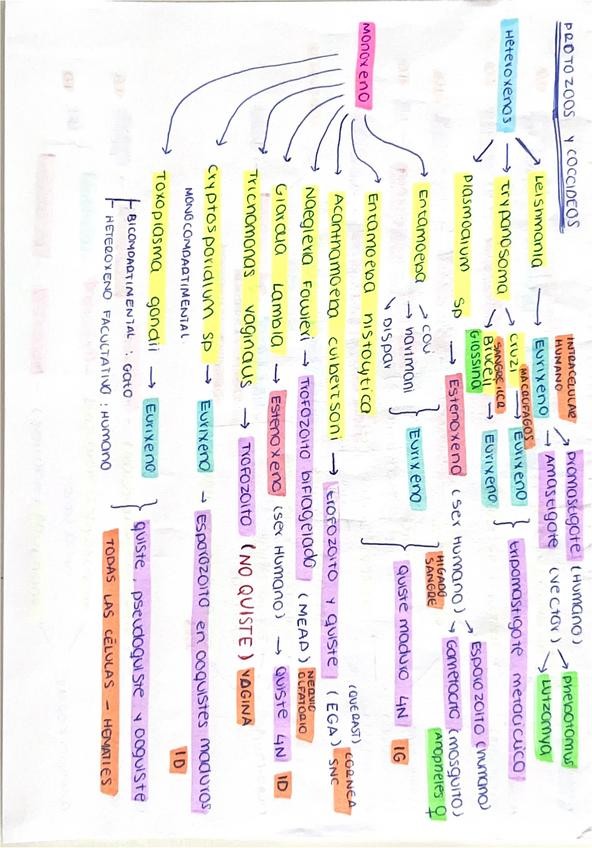 PROTOZOOS Y COCCIDEOS
Heteroxenos
Leishmania → Eurixeno
INTRACELULAR HUMANO
→ Promastigote (Humano) → Phebotomus
→ Amastigote (vector) → Lutzomya
Trypanosoma
→ Cruzi → Eurixeno
MACROFAGOS
→ Brucei → Eurixeno
SANGRE
Glossina
Tripomastigote metaciclico
Plasmodium sp → Estenoxeno (ser Humano)
HIGADO SANGRE
→ Esporozoito (humano)
→ Gametocito (mosquito)
Anopheles ♀
Monoxeno
Entamoeba
→ coli
→ hartmani
→ Dispar
Entamoeba histolytica
Eurixeno
quiste maduro 4N IG
Acanthamoeba culbertsoni → trofozoito y quiste (EGA) SNC
(QUERAST) CORNEA
Naegleria Fowleri → Trofozoito biflagelado (MEAP) NERVIO OLFATORIO
Giardia Lamblia → Estenoxeno (ser Humano) → quiste 4N ID
Tricnomonas vaginalis → Trofozoito (NO QUISTE) VAGINA
Cryptosporidium sp → Eurixeno → Esporozoito en ooquistes maduros
MONOCOMPARTIMENTAL
ID
Toxoplasma gondii → Eurixeno
quiste, pseudoquiste y ooquiste
BICOMPARTIMENTAL: Gato
HETEROXENO FACULTATIVO: Humano
TODAS LAS CÉLULAS - HEMATIES